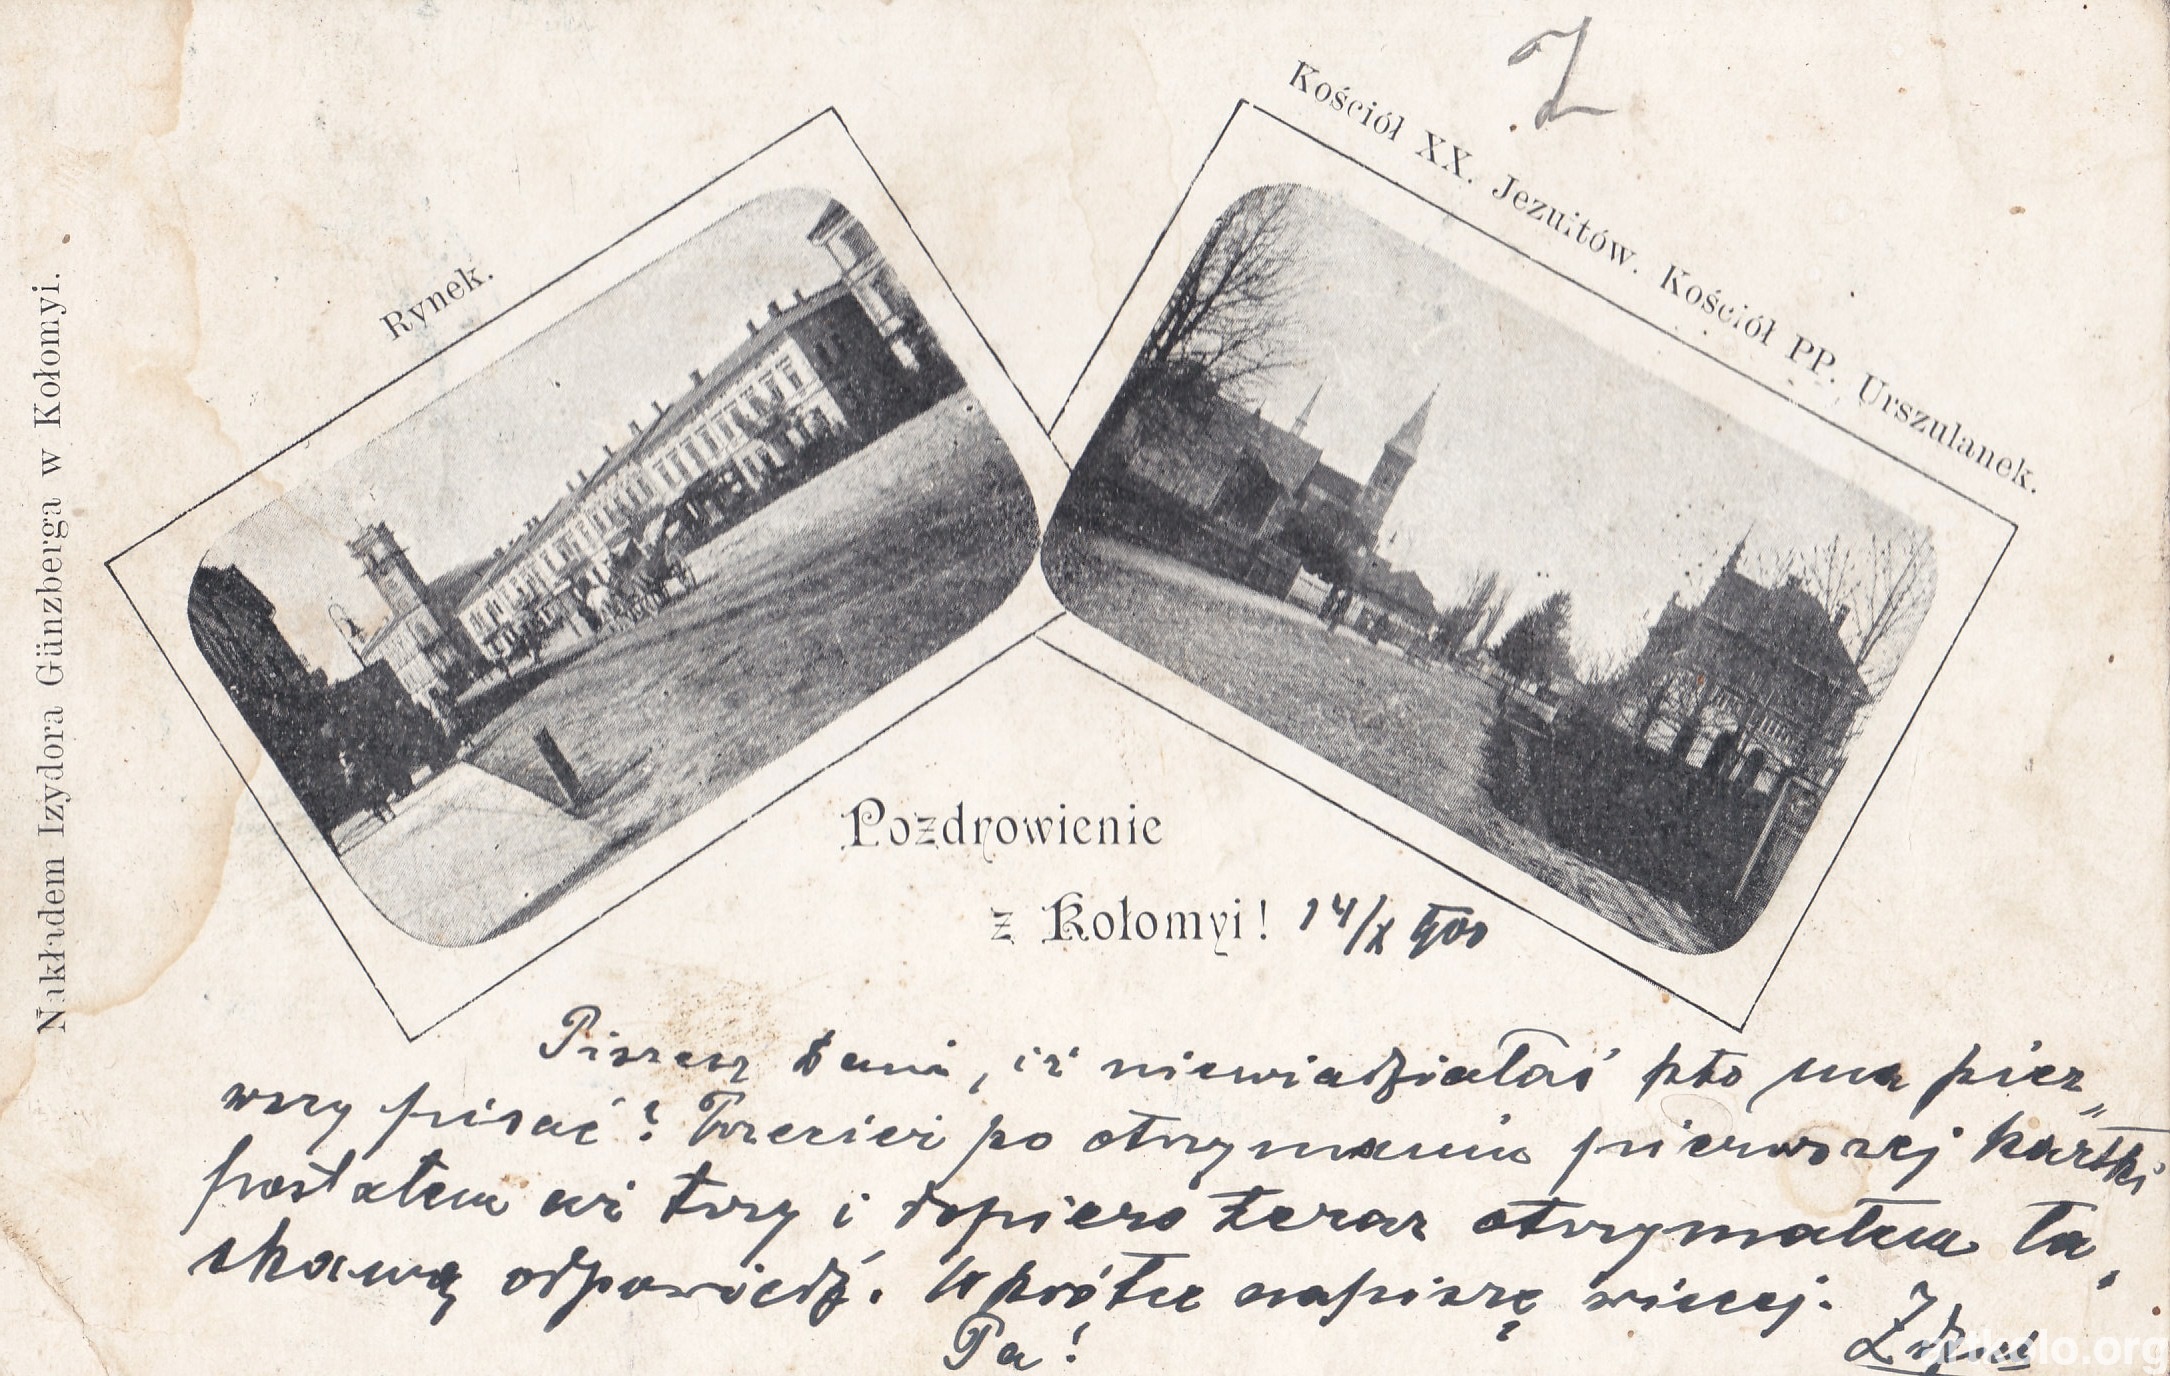 Kościół XX. Jezuitów. Kościół PP. Urszulanek.
Rynek.
Nakładem Izydora Günzberga w Kołomyi.
Pozdrowienie
z Kołomyi! 14/X 900
Piszesz, iż niewiedziałaś kto ma pier„
wszy pisać? Przecież po otrzymaniu pierwszej kartki
posłałem ci trzy i dopiero teraz otrzymałem ła„
skawą odpowiedź. Wkrótce napiszę więcej.
Pa!
artkolo.org